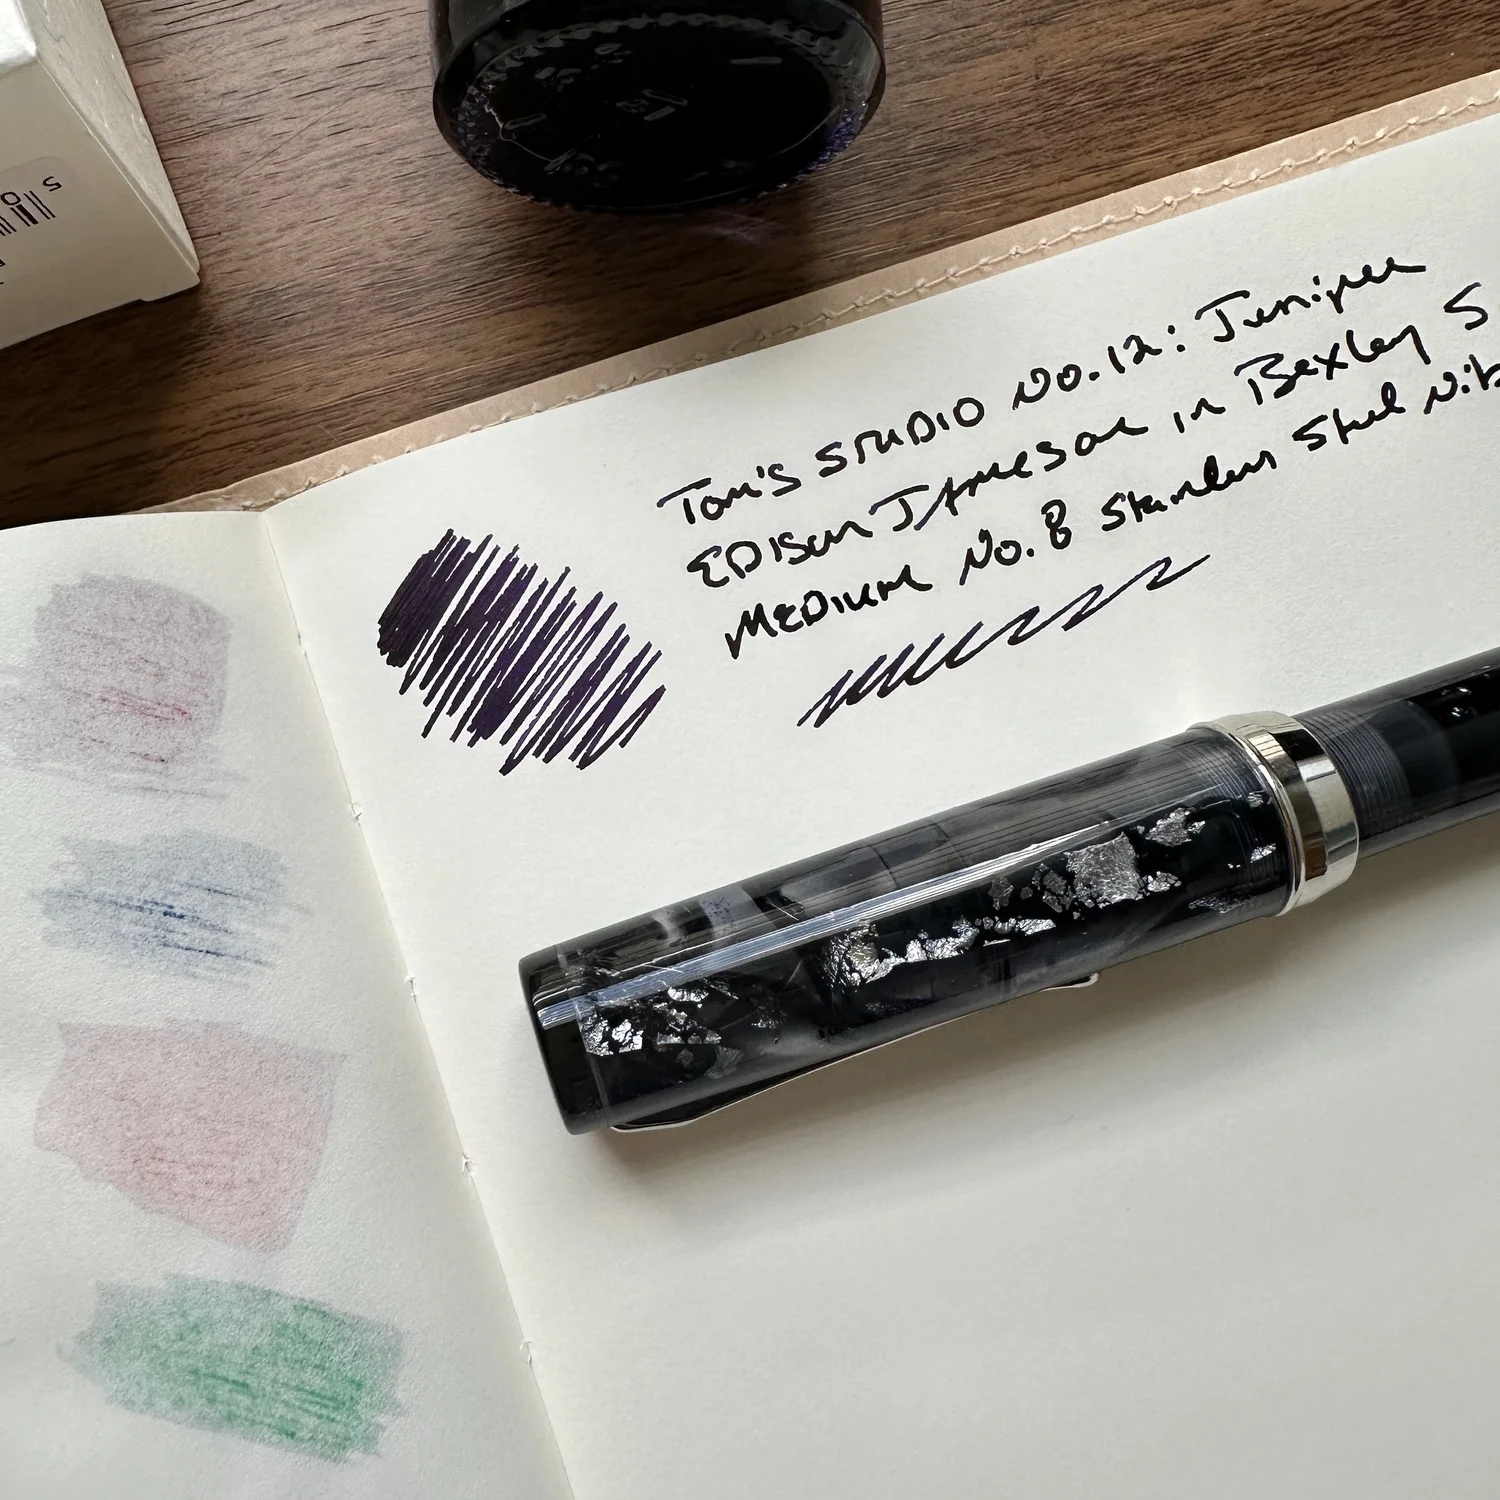 Tom's STUDIO No.12: Juniper
EDISON JAMESON in Bexley S
MEDIUM No. 8 Stainless Steel Nib
5 0